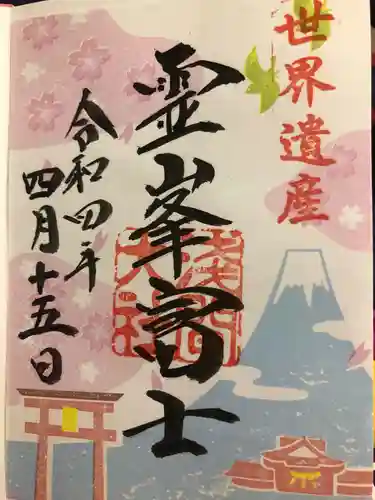 世界遺産
霊峯富士
浅間大社
令和四年
四月十五日